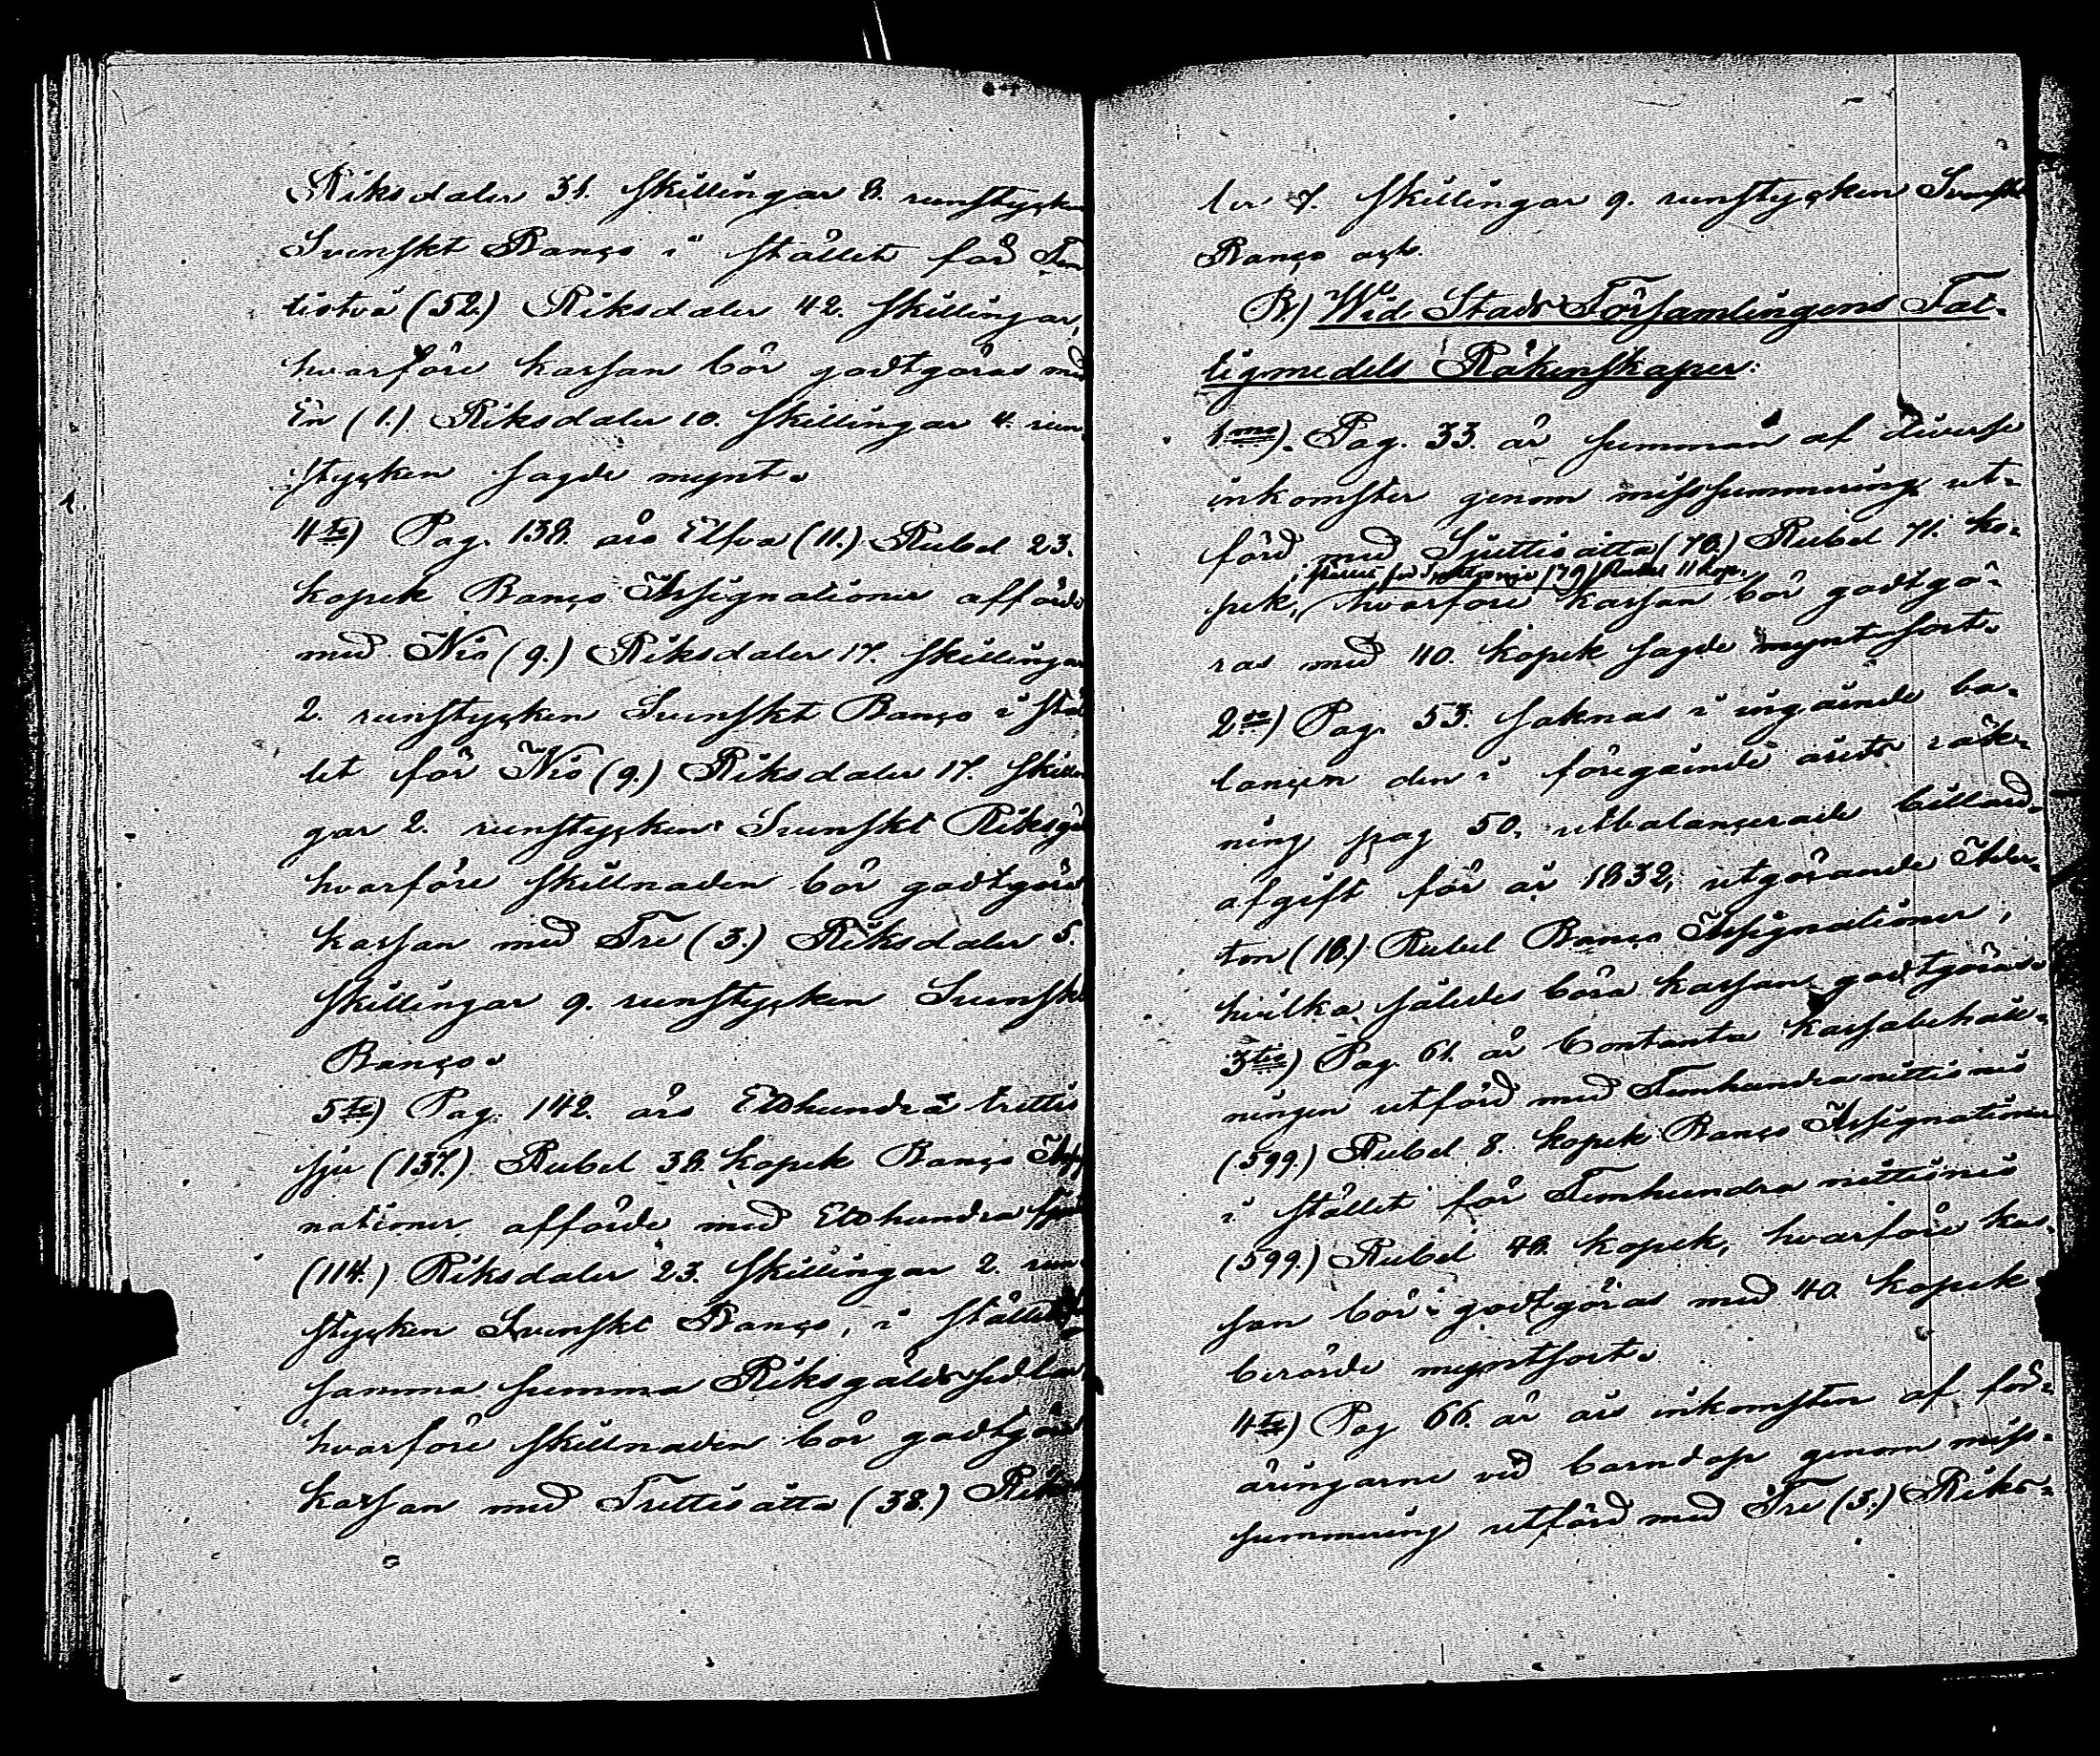 Riksdaler 31. skillingar 8. runstycken
Svenskt Banço i stället för Fem
tiotvå (52.) Riksdaler 42. skillingar,
hvarföre kassan bör godtgöras med
En (1.) Riksdaler 10. skillingar 4. run-
stycken sagde mynt.
4to) Pag. 138. äro Elfva (11.) Rubel 23.
kopek Banço Assignationer afförde
med Nio (9.) Riksdaler 17. skillingar
2. runstycken Svenskt Banço i stäl
let för Nio (9.) Riksdaler 17. skillin
gar 2. runstycken Svenskt Riksgäl
hvarföre skillnaden bör godtgöras
kassan med Tre (3.) Riksdaler 5.
skillingar 9. runstycken Svenskt
Banço.
5to) Pag. 142. äro Etthundra trettio
sju (137.) Rubel 38. kopek Banço Assig
nationer afförde med Etthundra fjor
(114.) Riksdaler 23. skillingar 2. run
stycken Svenskt Banço, i stället
samma summa Riksgälds sedlar
hvarföre skillnaden bör godtgöras
kassan med Trettioåtta (38.) Riks
ler 7. skillingar 9. runstycken Svenskt
Banço och.
B.) Wid Stads Församlingens Fat-
tigmedels Räkenskaper:
1mo). Pag. 33. är summan af diverse
inkomster genom missummering ut-
förd med Sjuttioåtta (78.) Rubel 71. ko-
stället för Sjuttionio (79) Rubel 11 kop.
pek, hvarföre kassan bör godtgö-
ras med 40. kopek sagde myntsort.
2do) Pag. 53. saknas i ingående ba-
lançen den i föregående årets räk-
ning pag 50. utbalançerade billard-
afgift för år 1832, utgörande Ader-
ton (18.) Rubel Banço Assignationer,
hvilka således böra kassan godtgöras.
3tio) Pag. 61. är Contanta kassabehåll-
ningen utförd med Femhundranittionio
(599.) Rubel 8. kopek Banço Assignationer
i stället för Femhundra nittionio
(599.) Rubel 48. kopek, hvarföre kas-
san bör godtgöras med 40. kopek
berörde myntsort.
4to) Pag 66. är års inkomsten af för-
äringarne vid barndop genom miss-
summering utförd med Tre (3.) Riks-